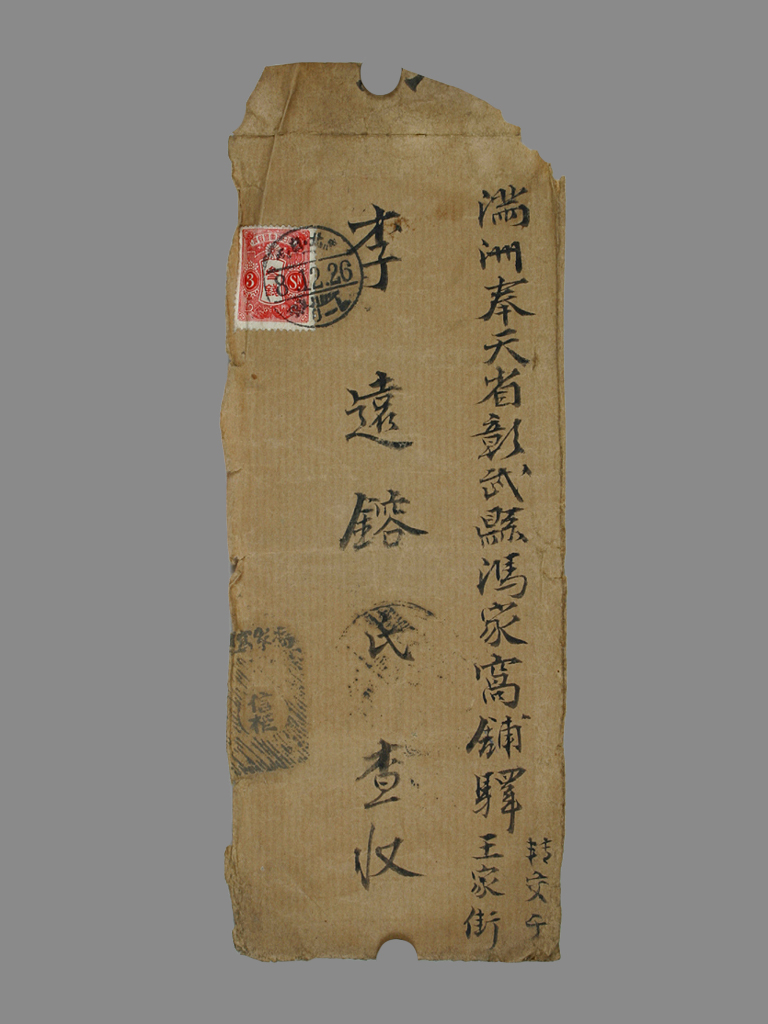 满洲奉天省彰武縣馮家窩舖驛王家街
转交于
李遠鎔氏查收
3 Sn.
8.12.26
信柜